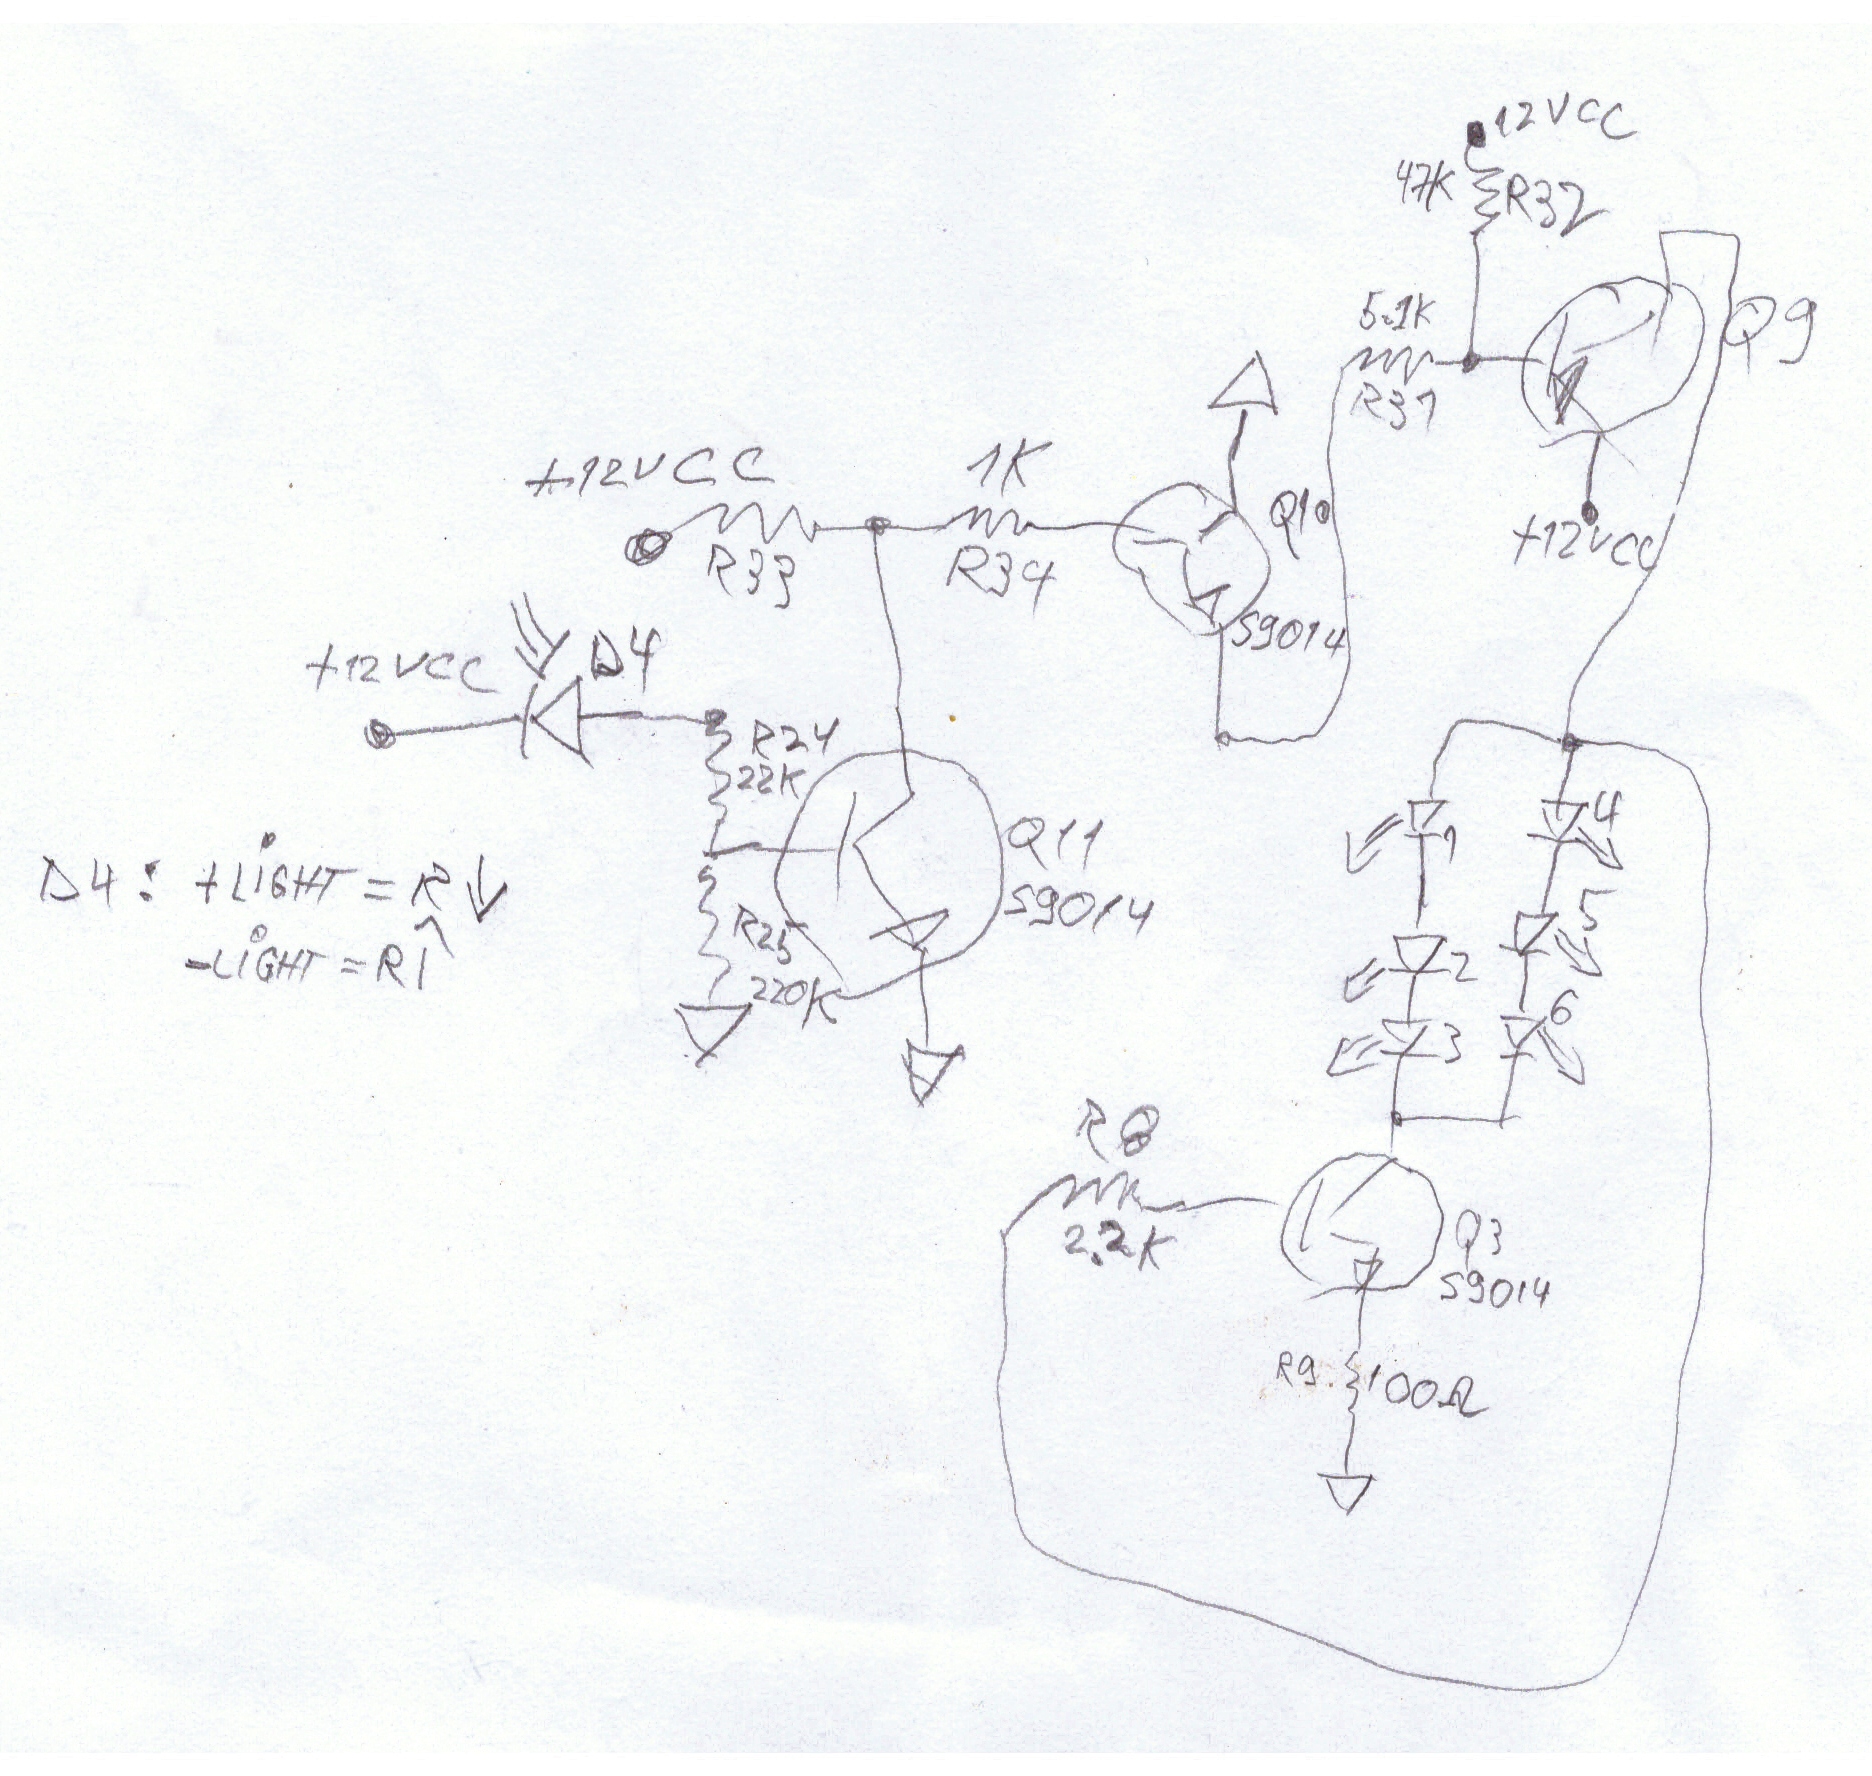 12VCC
47K R32
5.1K
R31
Q9
+12VCC
+12VCC
R33
1K
R34
Q10
S9014
+12VCC
D4
R24
22K
Q11
S9014
R25
220K
D4: +LIGHT = R↓
-LIGHT = R↑
1
2
3
4
5
6
R8
2.2K
Q3
S9014
R9 100Ω